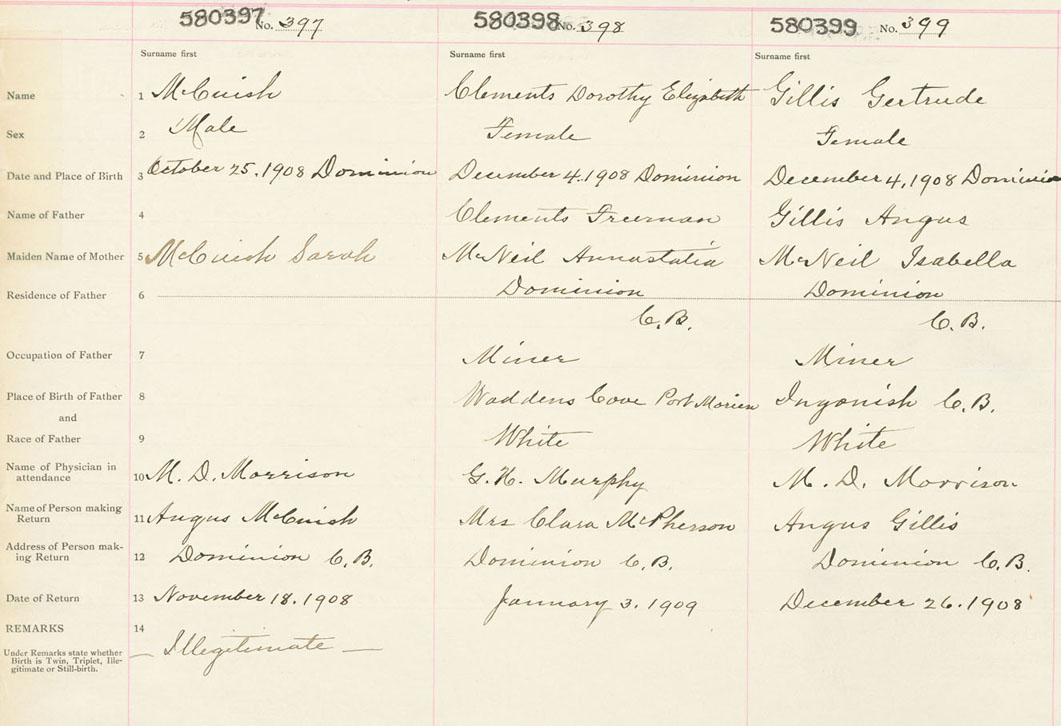 580397 No. 397 580398 No. 398 580399 No. 399
Surname first Surname first Surname first
Name 1 McCuish Clements Dorothy Elizabeth Gillis Gertrude
Sex 2 Male Female Female
Date and Place of Birth 3 October 25. 1908 Dominion December 4. 1908 Dominion December 4, 1908 Dominion
Name of Father 4 Clements Freeman Gillis Angus
Maiden Name of Mother 5 McCuish Sarah McNeil Annastatia McNeil Isabella
Residence of Father 6 Dominion Dominion
C.B. C.B.
Occupation of Father 7 Miner Miner
Place of Birth of Father 8 Waddens Cove Port Morien Ingonish C.B.
and
Race of Father 9 White White
Name of Physician in
attendance 10 M. D. Morrison G. H. Murphy M. D. Morrison
Name of Person making
Return 11 Angus McCuish Mrs Clara McPherson Angus Gillis
Address of Person mak-
ing Return 12 Dominion C.B. Dominion C.B. Dominion C.B.
Date of Return 13 November 18. 1908 January 3. 1909 December 26. 1908
REMARKS 14
Under Remarks state whether — Illegitimate —
Birth is Twin, Triplet, Ille-
gitimate or Still-birth.